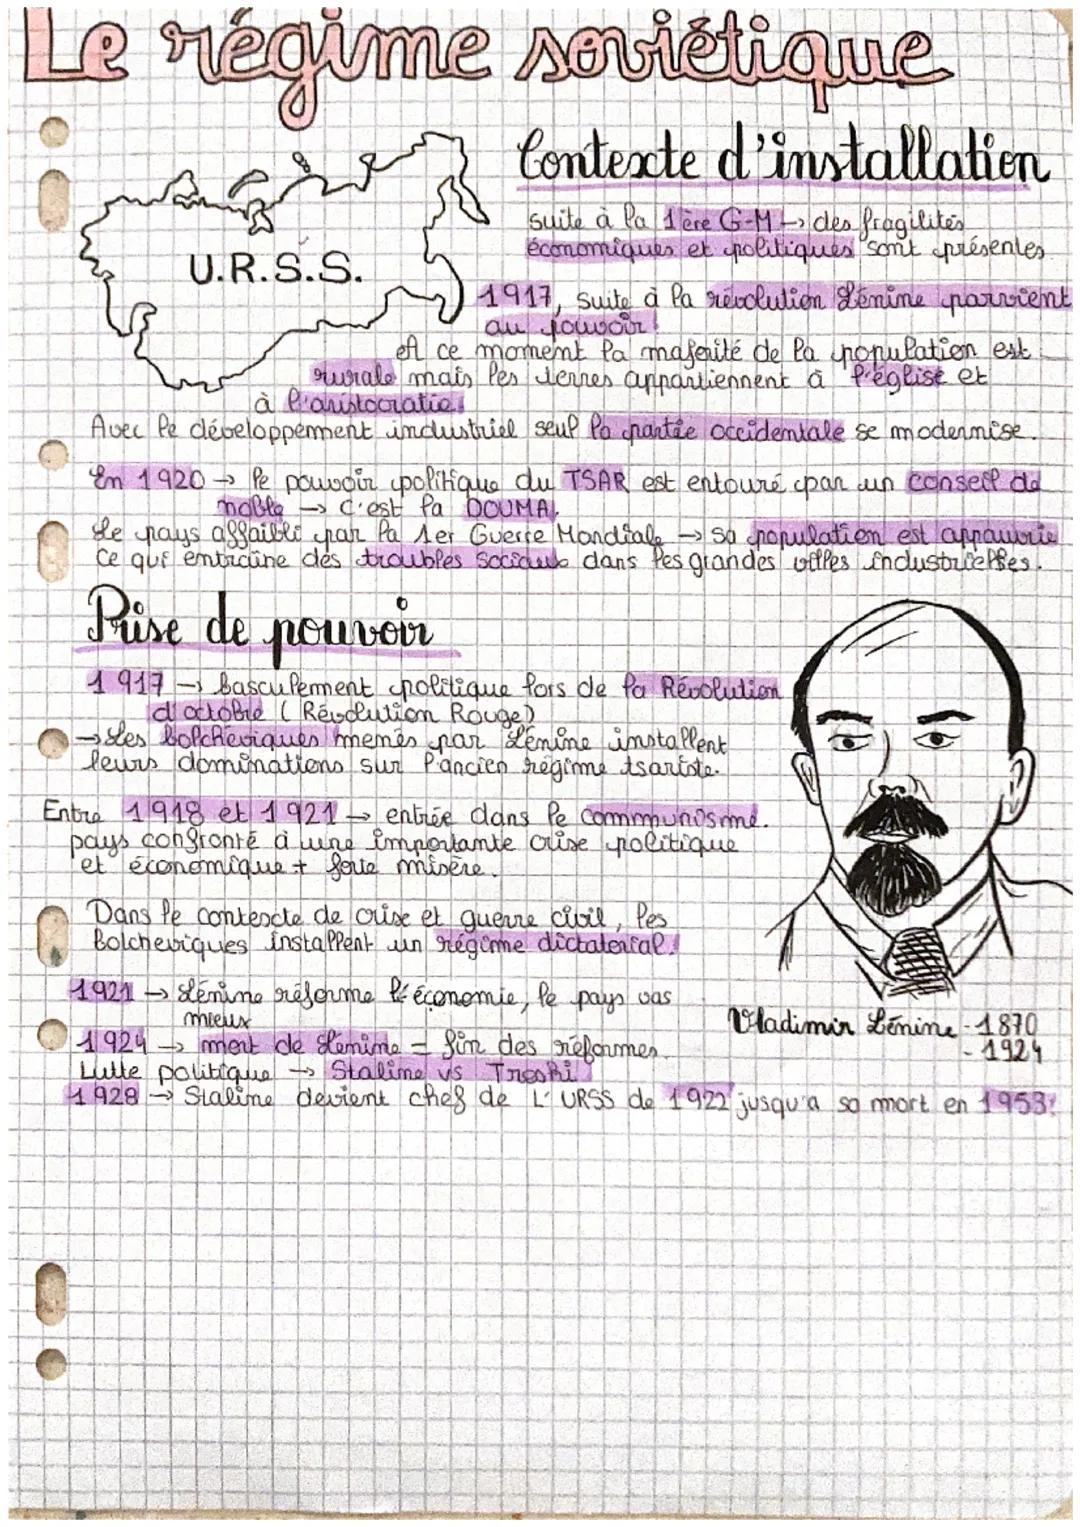 Le régime soviétique
U.R.S.S.
Contexte d'installation
suite à la 1ère G-M → des fragilités
économiques et politiques sont présentes
1917, suite à la révolution Lénine parvient
au pouvoir.
A ce moment la majorité de la population est
rurale mais les terres appartiennent à l'église et
à l'aristocratie.
Avec le développement industriel seul la partie occidentale se modernise.
En 1920 → le pouvoir politique du TSAR est entouré par un conseil de
noble → c'est la DOUMA.
Le pays affaibli par la 1er Guerre Mondiale → sa population est appauvrie
ce qui entraîne des troubles sociaux dans les grandes villes industrielles.
Prise de pouvoir
1917 → basculement politique lors de la Révolution
d'octobre (Révolution Rouge)
→ Les bolcheviques menés par Lénine installent
leurs dominations sur l'ancien régime tsariste.
Entre 1918 et 1921 → entrée dans le communisme.
pays confronté à une importante crise politique
et économique + forte misère.
Dans le contexte de crise et guerre civil, les
Bolcheviques installent un régime dictatorial.
1921 → Lénine réforme l'économie, le pays vas
mieux
1924 → mort de Lénine = fin des réformes.
Lutte politique → Staline vs Troski
1928 → Staline devient chef de L'URSS de 1922 jusqu'a sa mort en 1953.
Vladimir Lénine - 1870
- 1924